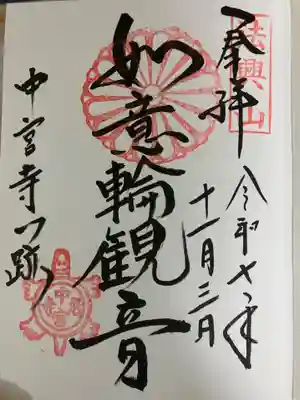 奉拝
法興山
令和七年
十一月三日
如意輪観音
中宮寺門跡